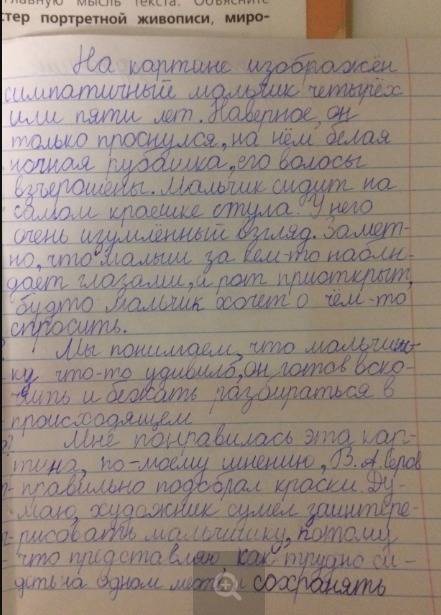 главную мысль текста. Объясните
стер портретной живописи, миро-
На картине изображён
симпатичный мальчик четырёх
или пяти лет. Наверное, он
только проснулся, на нём белая
ночная рубашка, его волосы
взъерошены. Мальчик сидит на
самом краешке стула. У него
очень изумлённый взгляд. Замет-
но, что малыш за кем-то наблю-
дает глазами, и рот приоткрыт,
будто мальчик хочет о чём-то
спросить.
Мы понимаем, что мальчиш-
ку что-то удивило, он готов вско-
чить и бежать разбираться в
происходящем
Мне понравилась эта кар-
тина, по-моему мнению, В.А.Серов
правильно подобрал краски. Ду-
маю, художник сумел заинтере-
рисовать мальчишку, потому
что представляю как трудно си-
деть на одном месте и сохранять